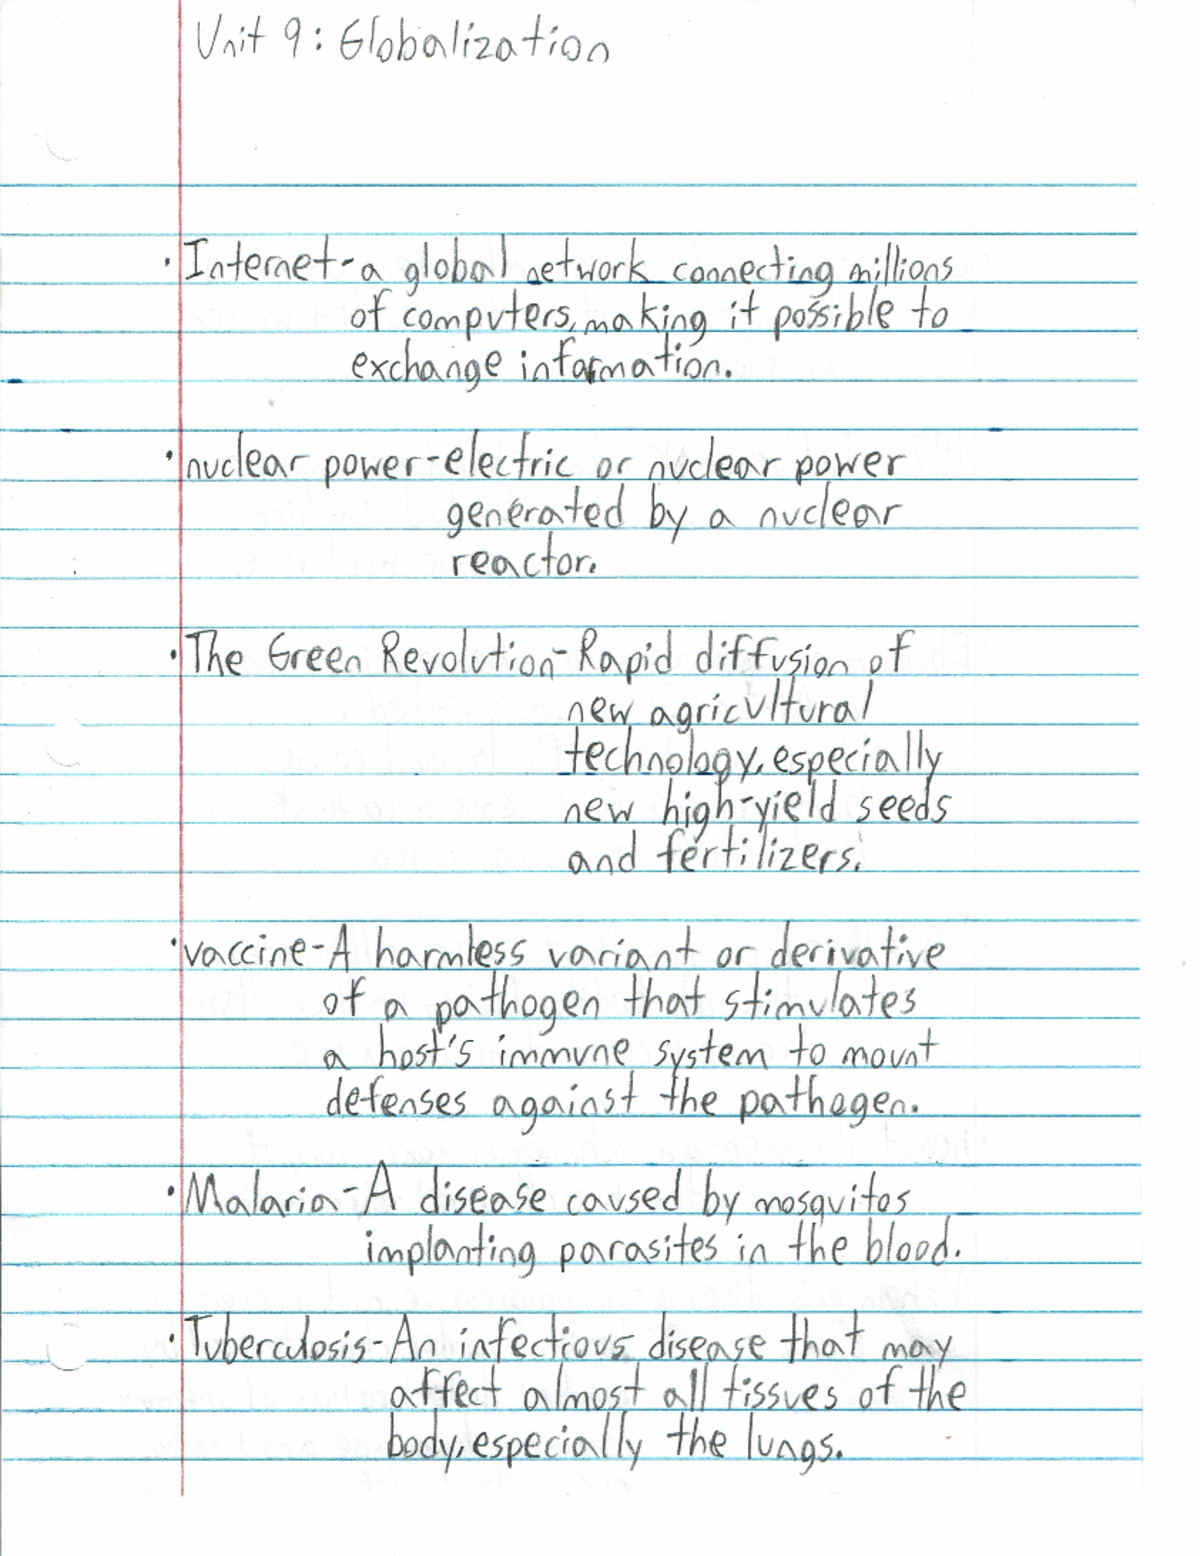 Unit 9: Globalization
· Internet - a global network connecting millions
of computers, making it possible to
exchange information.
· nuclear power - electric or nuclear power
generated by a nuclear
reactor.
· The Green Revolution - Rapid diffusion of
new agricultural
technology, especially
new high-yield seeds
and fertilizers.
· vaccine - A harmless variant or derivative
of a pathogen that stimulates
a host's immune system to mount
defenses against the pathogen.
· Malaria - A disease caused by mosquitos
implanting parasites in the blood.
· Tuberculosis - An infectious disease that may
affect almost all tissues of the
body, especially the lungs.